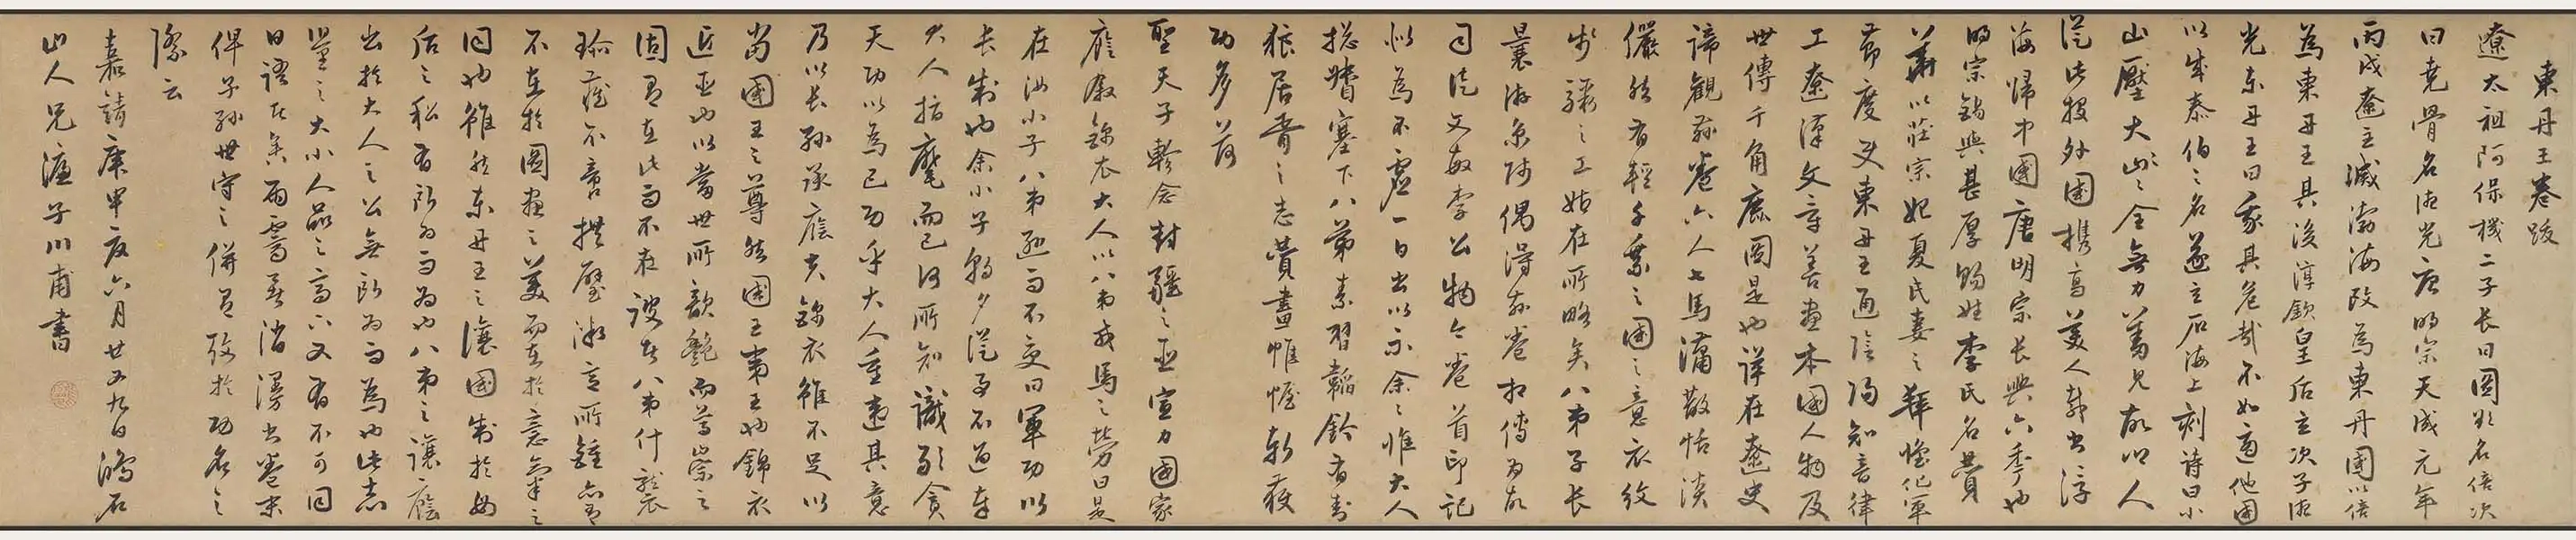 東丹王卷跋
遼太祖阿保機二子長曰圖欲名倍次
曰堯骨名德光唐明宗天成元年
丙戌遼主滅渤海改為東丹國以倍
為東丹王其後淳欽皇后立次子德
光東丹王曰我其危哉不如適他國
以成泰伯之名遂立石海上刻詩曰小
山壓大山大山全無力羞見故鄉人
從此投外國攜高美人載書浮
海歸中國唐明宗長興六季也
明宗錫與甚厚賜姓李氏名贊
華以莊宗妃夏氏妻之拜懷化軍
節度使東丹王通陰陽知音律
工遼漢文章善畫本國人物及
世傳千角鹿圖是也詳在遼史
諦觀茲卷六人七馬瀟散恬淡
儼然有輕千乘之國之意衣紋
步驟之工姑在所略矣八弟子長
曩游京師偶得茲卷相傳為故
司徒文敏李公物今卷首印記
似為不虛一日出以示余余惟大人
總督塞下八弟素習韜鈐有封
狼居胥之志贊畫帷幄斬獲
功多前
聖天子軫念封疆之臣宣力國家
應廕錦衣大人以八弟戎馬之勞曰是
在汝小子八弟遜而不受曰軍功以
長制也余小子朝夕從事不過奉
大人指麾而已何所知識敢貪
天功以為己功乎大人重違其意
乃以長孫承廕夫錦衣雖不足以
當國王之尊然國王夷王也錦衣
近臣也以當世所歆艷而尊崇之
固有在此而不在彼者八弟什襲
珍藏不啻拱璧洲言所鍾亦有
不在於圖畫之美而在於意氣之
同也雖然東丹王之讓國制於母
后之私有所為而為也八弟之讓廕
出於大人之公無所為而為也此志
量之大小人品之高下又有不可同
日語者矣雨窗無事消漫書卷末
俾子孫世守之併有致於功名之
際云
嘉靖庚申夏六月廿又九日鴻石
山人兄濂子川甫書